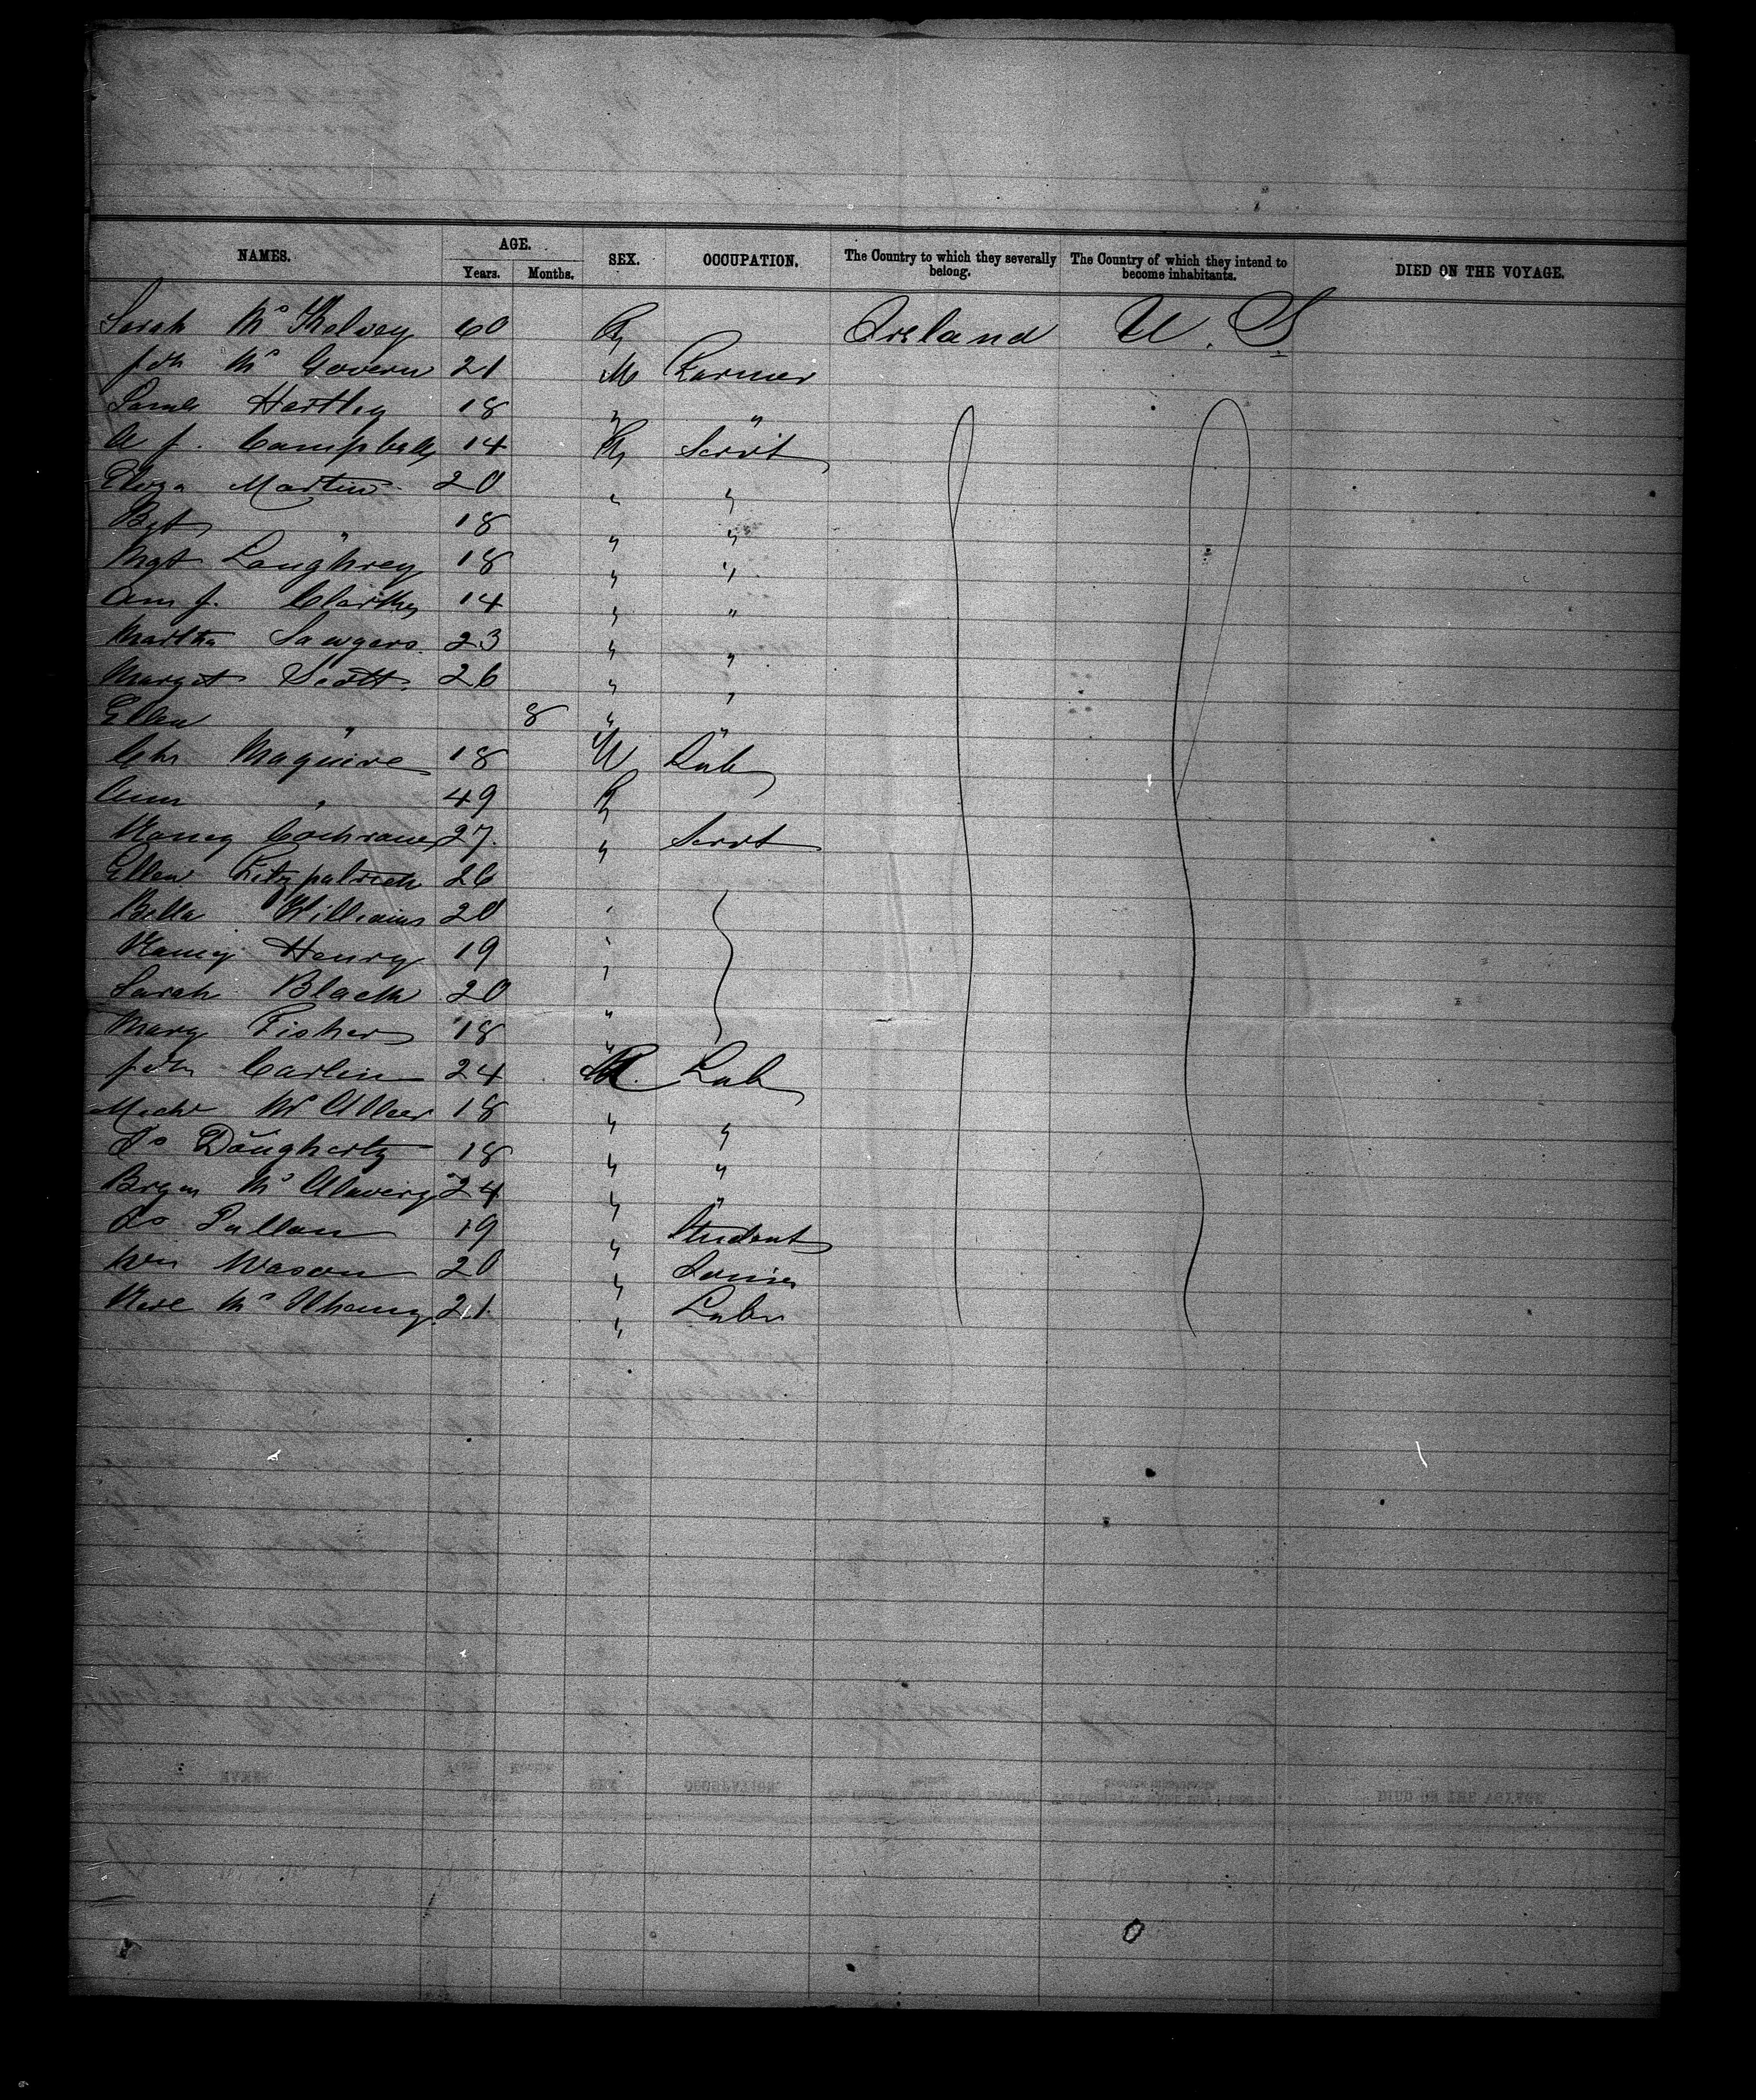 NAMES. AGE. SEX. OCCUPATION. The Country to which they severally belong. The Country of which they intend to become inhabitants. DIED ON THE VOYAGE.
Years. Months.
Sarah Mc Kelvey 60 F Ireland U. S
Jno Mc Govern 21 M Farmer
Hartley 18 " "
A J. Campbell 14 F Servt
Eliza Martin 20 " "
Bgt " 18 " "
Mgt Loughrey 18 " "
Ann J. 14 " "
Martha Sawyers 23 " "
Margt Scott. 26 " "
Ellen " 8 " "
Chs Maguire 18 M Lab
Ann " 49 F
Nancy Cochrane 27 " Servt
Ellen Fitzpatrick 26
Bella Williams 20 "
Nancy Henry 19 "
Sarah Black 20 "
Mary Fisher 18 "
Jno Carlin 24 M. Lab
Michl Mc Aleer 18 " "
Jo Dougherty 18 " "
Bryan Mc 24 " "
Jo 19 " Student
Wm Wason 20 "
Mc 21 " Labr